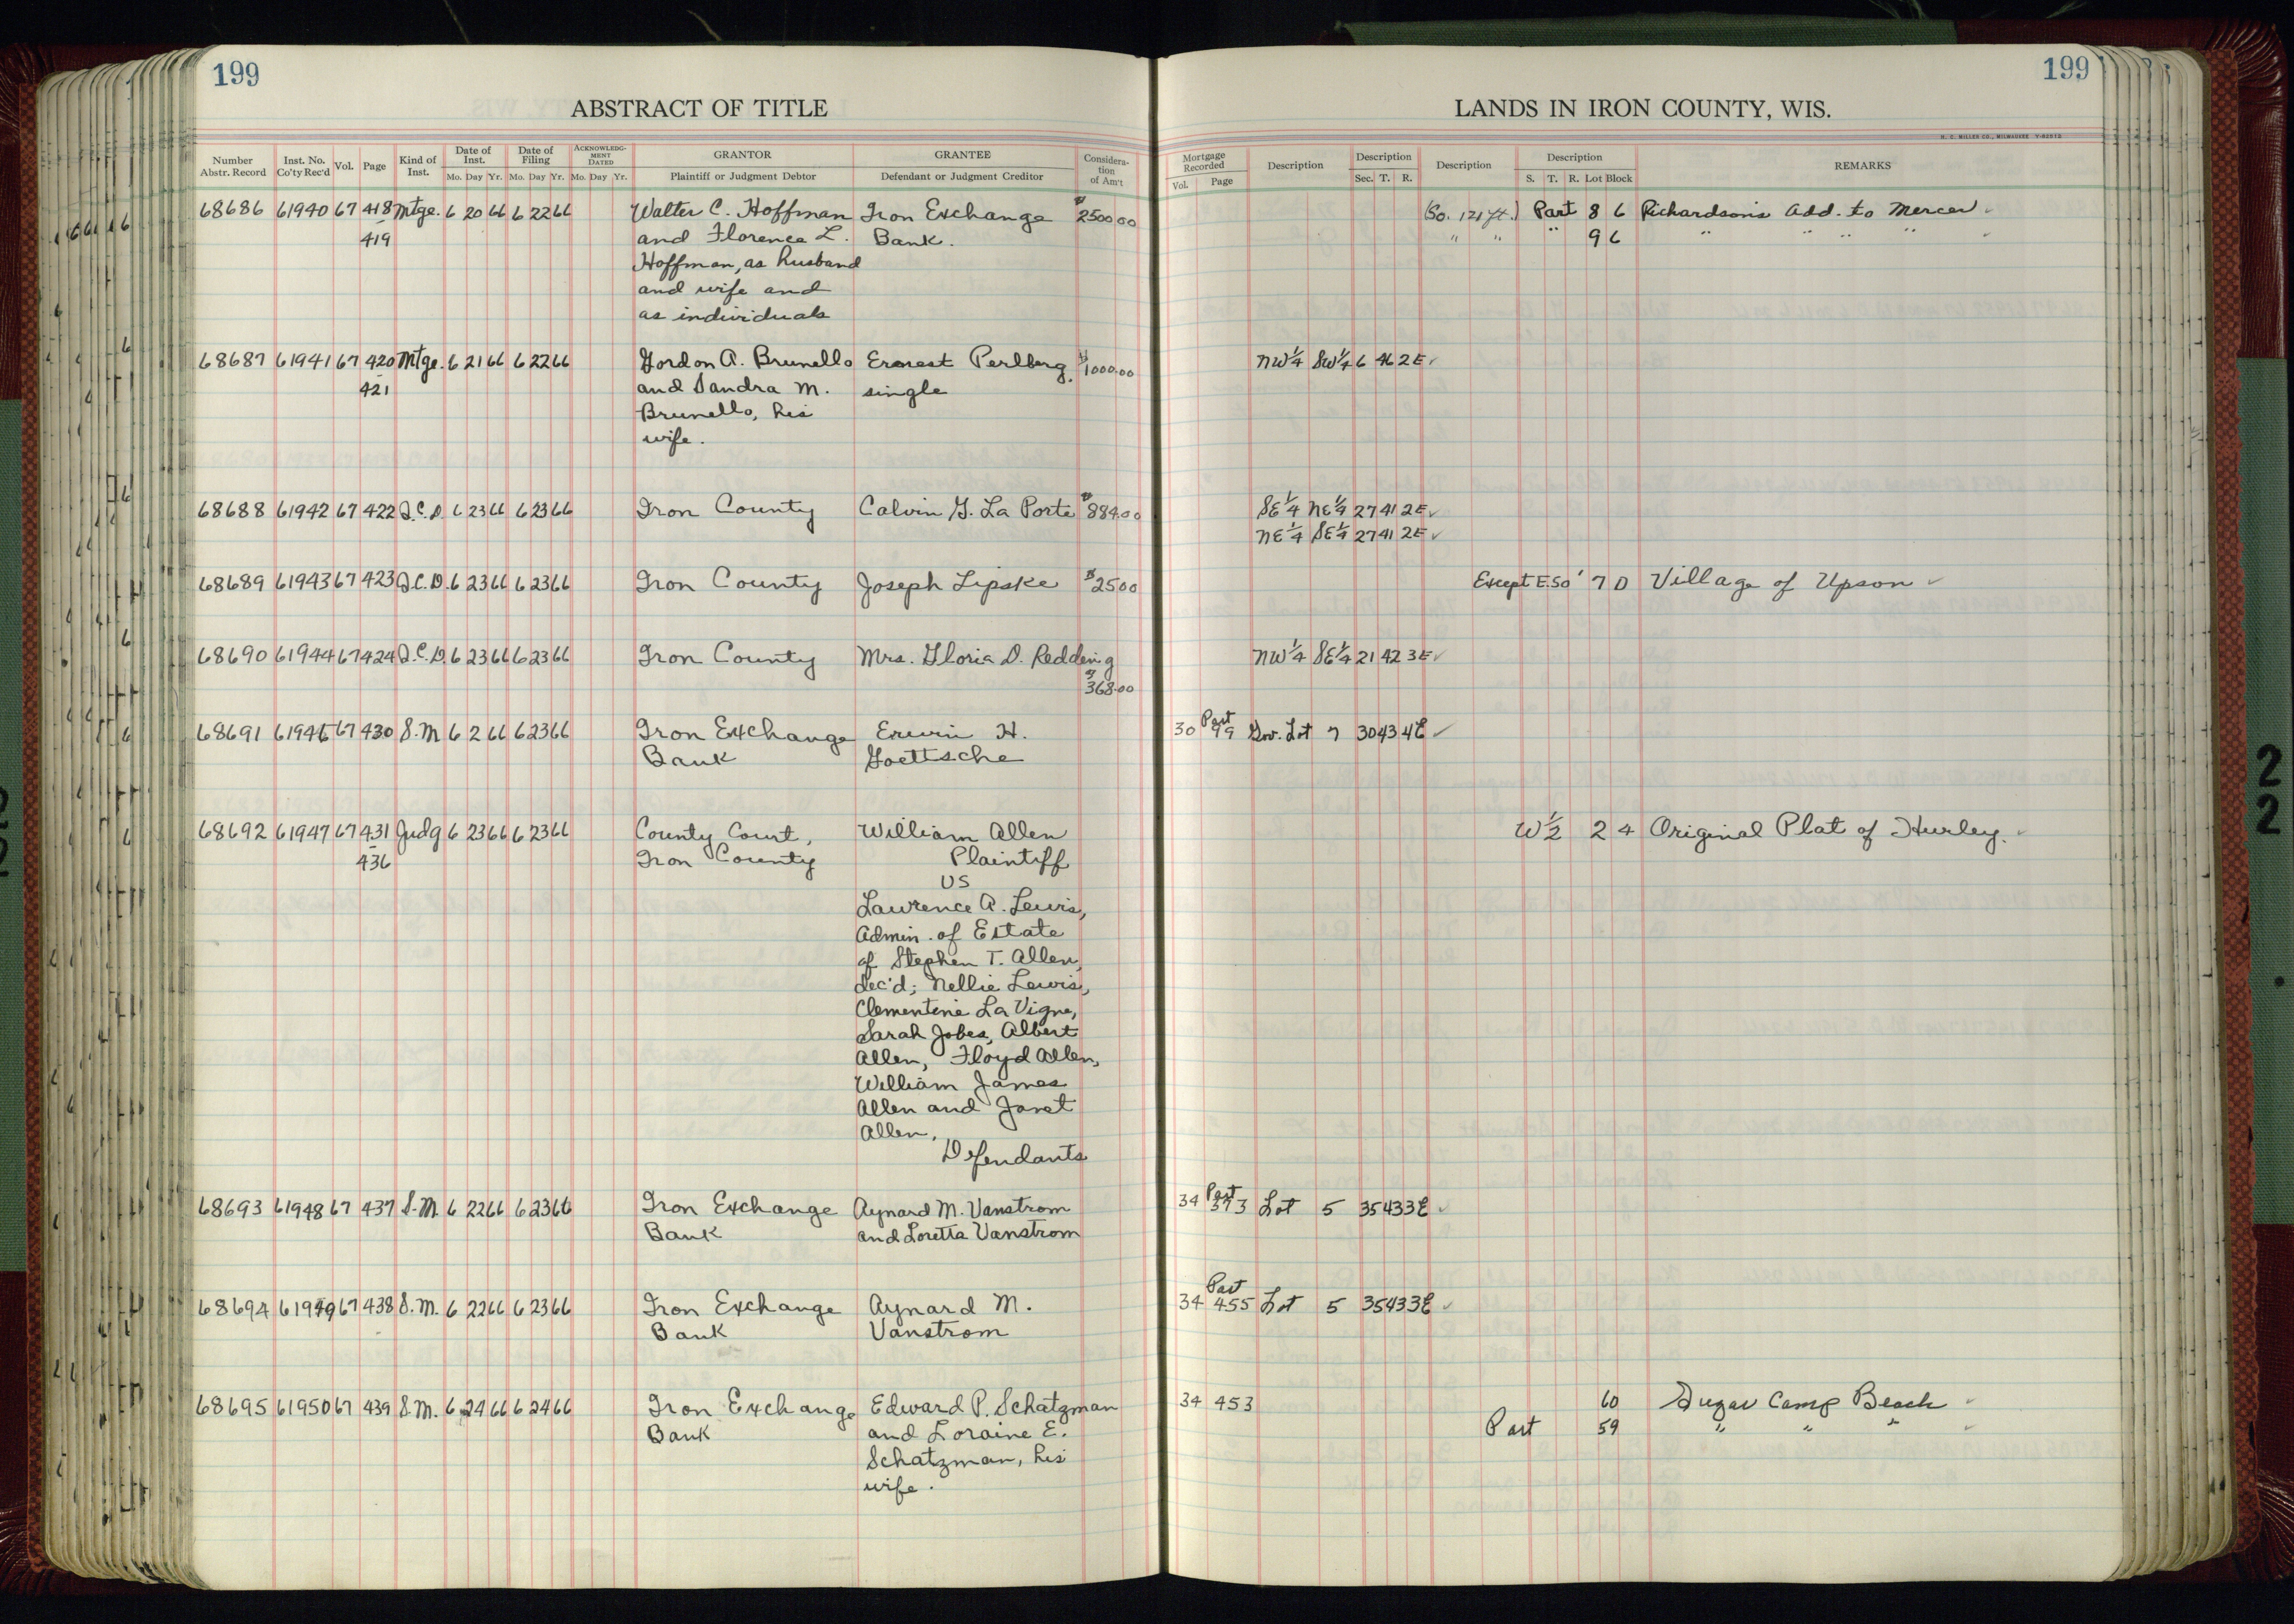 199
199
ABSTRACT OF TITLE
LANDS IN IRON COUNTY, WIS.
H. C. MILLER CO., MILWAUKEE
Number Abstr. Record
Inst. No. Co'ty Rec'd
Vol.
Page
Kind of Inst.
Date of Inst.
Mo. Day Yr.
Date of Filing
Mo. Day Yr.
ACKNOWLEDG-MENT DATED
Mo. Day Yr.
GRANTOR
Plaintiff or Judgment Debtor
GRANTEE
Defendant or Judgment Creditor
Considera-tion of Am't
Mortgage Recorded
Vol. Page
Description
Description
Sec. T. R.
Description
Description
S. T. R. Lot Block
REMARKS
68686 61940 67 418 Mtge. 6 20 66 6 22 66 Walter C. Hoffman Iron Exchange $2500 00 (So. 121 ft.) Part 8 6 Richardson's Add. to Mercer ✓
- 419 and Florence L. Bank. " " " 9 6 " " " " ✓
Hoffman, as husband
and wife and
as individuals
68687 61941 67 420 Mtge. 6 21 66 6 22 66 Gordon A. Brunello Ernest Perlberg, $1000.00 NW¼ SW¼ 6 46 2E ✓
- 421 and Sandra M. single
Brunello, his
wife.
68688 61942 67 422 Q.C.D. 6 23 66 6 23 66 Iron County Calvin G. La Porte $884.00 SE¼ NE¼ 27 41 2E ✓
NE¼ SE¼ 27 41 2E ✓
68689 61943 67 423 Q.C.D. 6 23 66 6 23 66 Iron County Joseph Lipske $25 00 Except E. 50' 7 D Village of Upson ✓
68690 61944 67 424 Q.C.D. 6 23 66 6 23 66 Iron County Mrs. Gloria D. Redding NW¼ SE¼ 21 42 3E ✓
$368.00
68691 61946 67 430 S.M 6 2 66 6 23 66 Iron Exchange Erwin H. 30 Part 99 Gov. Lot 7 30 43 4E ✓
Bank Goettsche
68692 61947 67 431 Judg 6 23 66 6 23 66 County Court, William Allen W½ 2 4 Original Plat of Hurley. ✓
- 436 Iron County Plaintiff
vs
Lawrence A. Lewis,
Admin. of Estate
of Stephen T. Allen,
dec'd; Nellie Lewis,
Clementine La Vigne,
Sarah Jobes, Albert
Allen, Floyd Allen,
William James
Allen and Janet
Allen,
Defendants
68693 61948 67 437 S.M. 6 22 66 6 23 66 Iron Exchange Aynard M. Vanstrom 34 Part 373 Lot 5 35 43 3E ✓
Bank and Loretta Vanstrom
68694 61949 67 438 S.M. 6 22 66 6 23 66 Iron Exchange Aynard M. 34 Part 455 Lot 5 35 43 3E ✓
Bank Vanstrom
68695 61950 67 439 S.M. 6 24 66 6 24 66 Iron Exchange Edward P. Schatzman 34 453 60 Sugar Camp Beach ✓
Bank and Loraine E. Part 59 " " " ✓
Schatzman, his
wife.
2
2